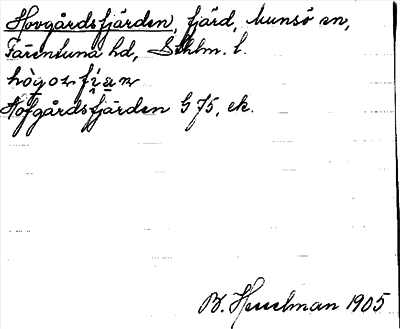 Hovgårdsfjärden, fjärd, Munsö sn,
Färentuna hd, Sthlm. l.
Hofgårdsfjärden G 75, ek.
B. Hesselman 1905